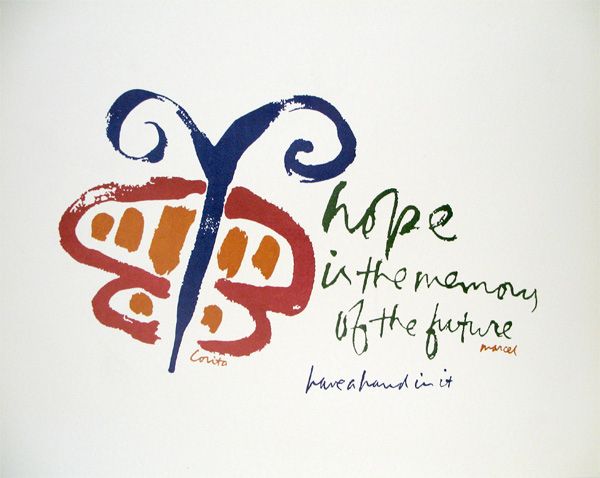 hope
is the memory
of the future
marcel
Corita
have a hand in it